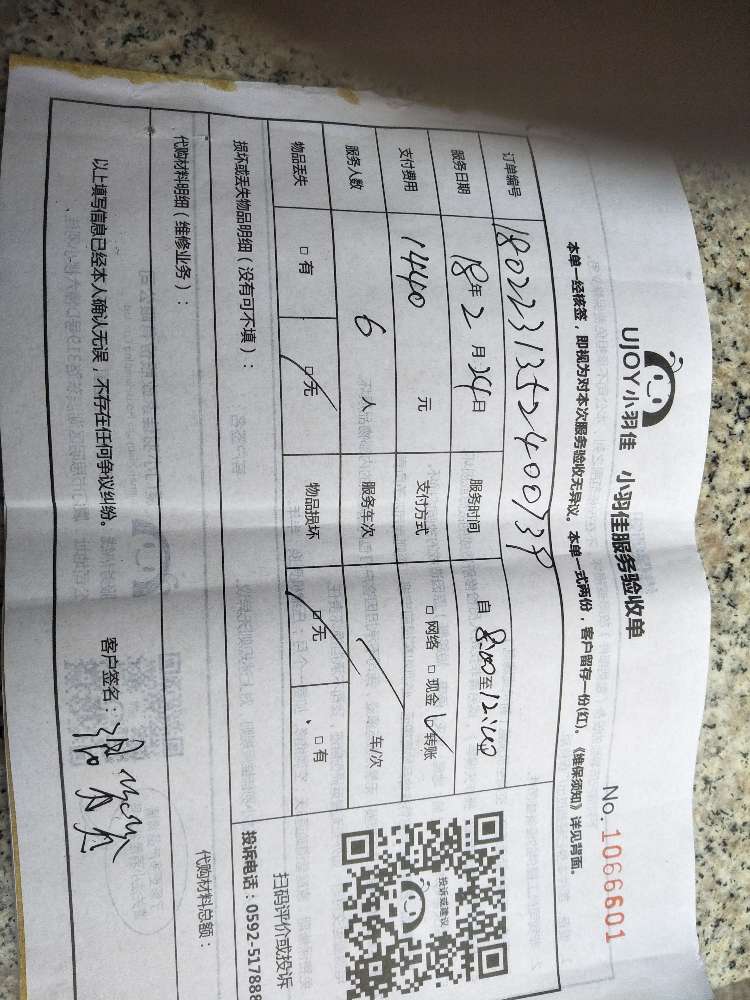 UJOY小羽佳 小羽佳服务验收单
No.1066601
本单一经核签，即视为对本次服务验收无异议。本单一式两份，客户留存一份(红)。《维保须知》详见背面。
订单编号 1802231352400739
服务日期 18年2月24日 服务时间 自8:00至12:00
支付费用 1440元 支付方式 □网络 □现金 □转账
服务人数 6人 服务车次 车/次
物品丢失 □有 □无 物品损坏 □无 □有
损坏或丢失物品明细（没有可不填）：
投诉或建议
扫码评价或投诉
投诉电话：0592-517888
代购材料明细（维修业务）：
代购材料总额：
以上填写信息已经本人确认无误，不存在任何争议纠纷。
客户签名：